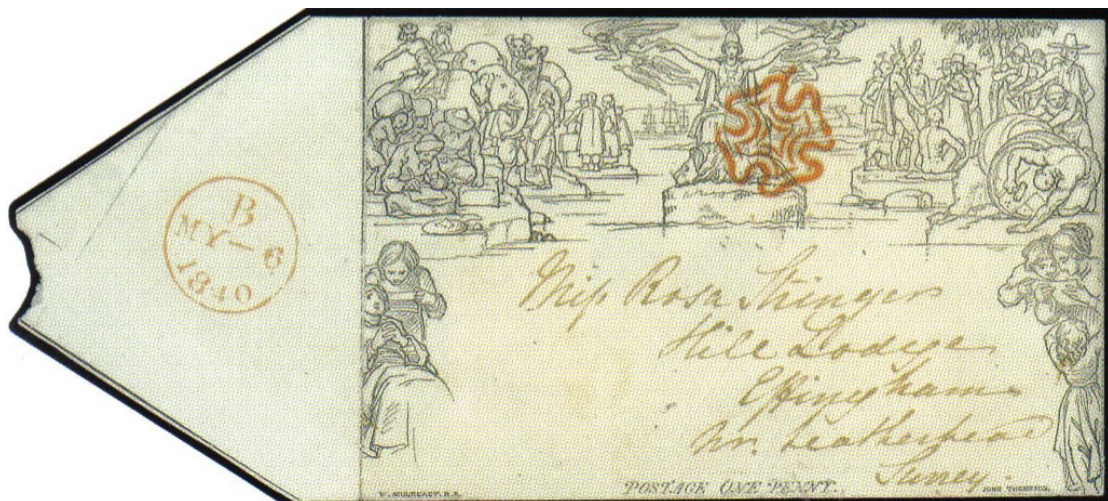 B
MY—6
1840
Miſs Rosa Stringer
Hill Lodge
Effingham
nr. Leatherhead
Surrey.
W. MULREADY. R.A.
POSTAGE ONE PENNY.
JOHN THOMPSON.